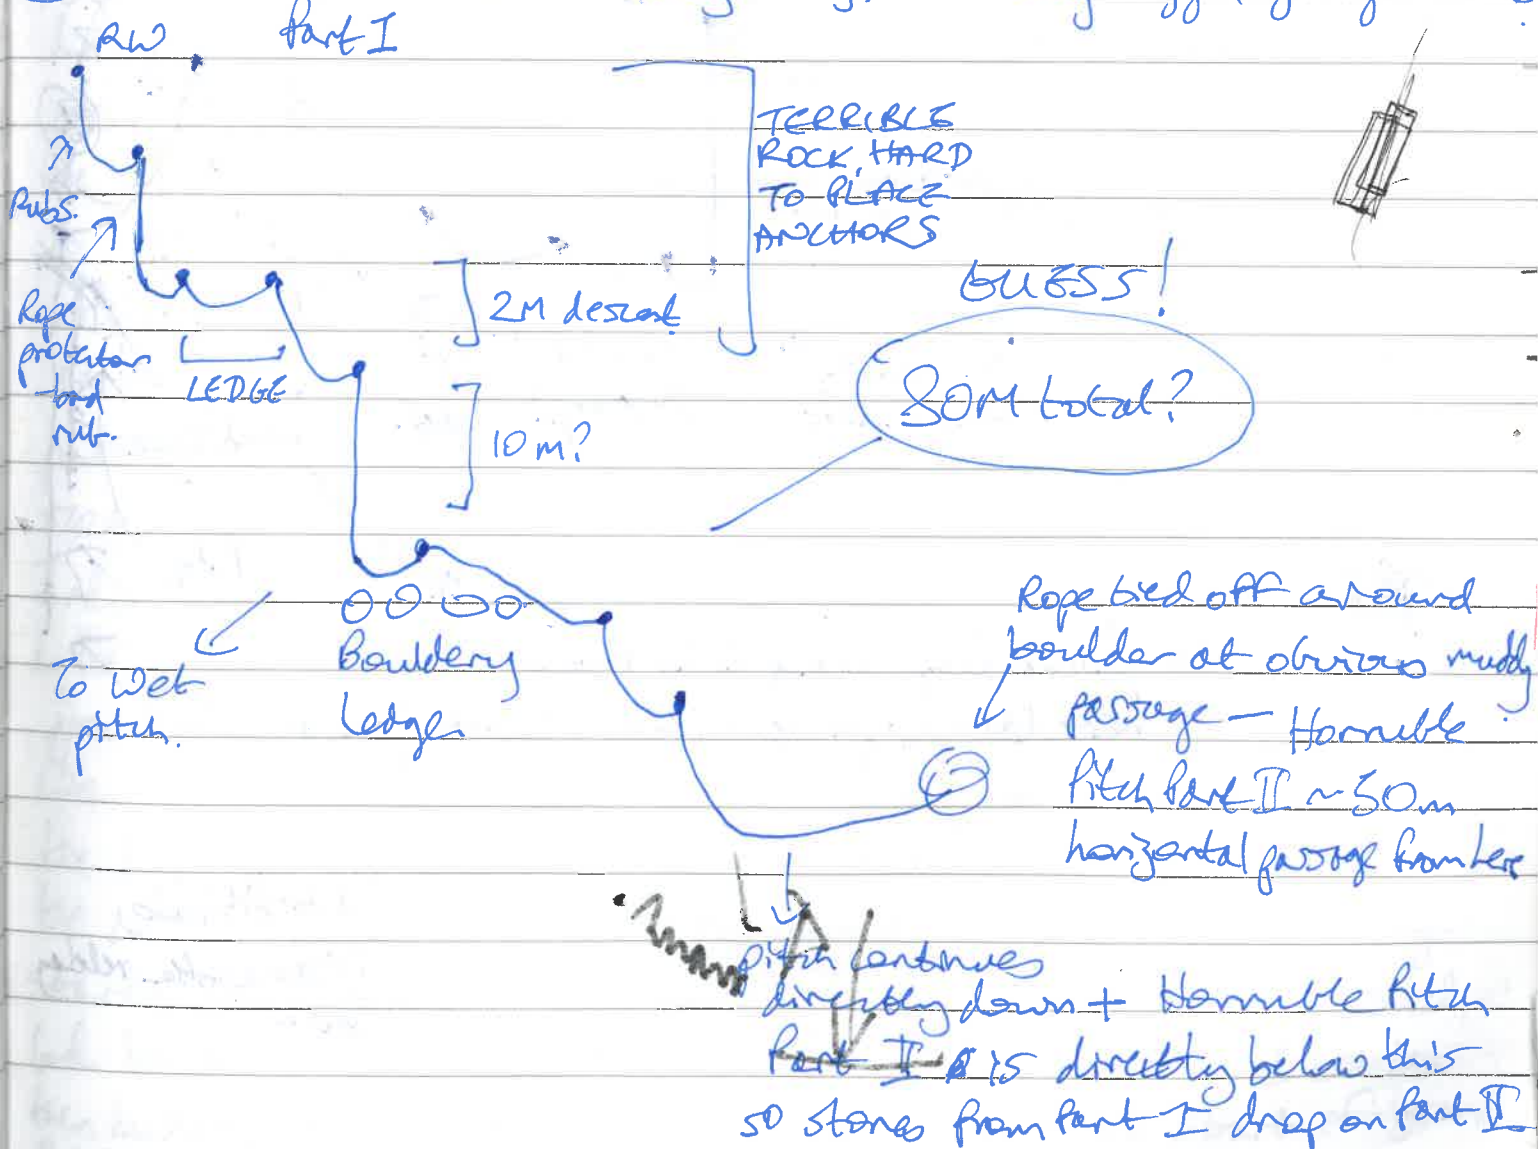 RW Part I
TERRIBLE
ROCK, HARD
TO PLACE
ANCHORS
Rubs.
Rope
protector
and
rub.
LEDGE
2M descent
10m?
GUESS!
80M total?
To Wet
pitch.
Bouldery
Ledge
Rope tied off around
boulder at obvious muddy
passage – Horrible
Pitch Part II ~50m
horizontal passage from here
pitch continues
directly down + Horrible Pitch
Part II is directly below this
so stones from Part I drop on Part II